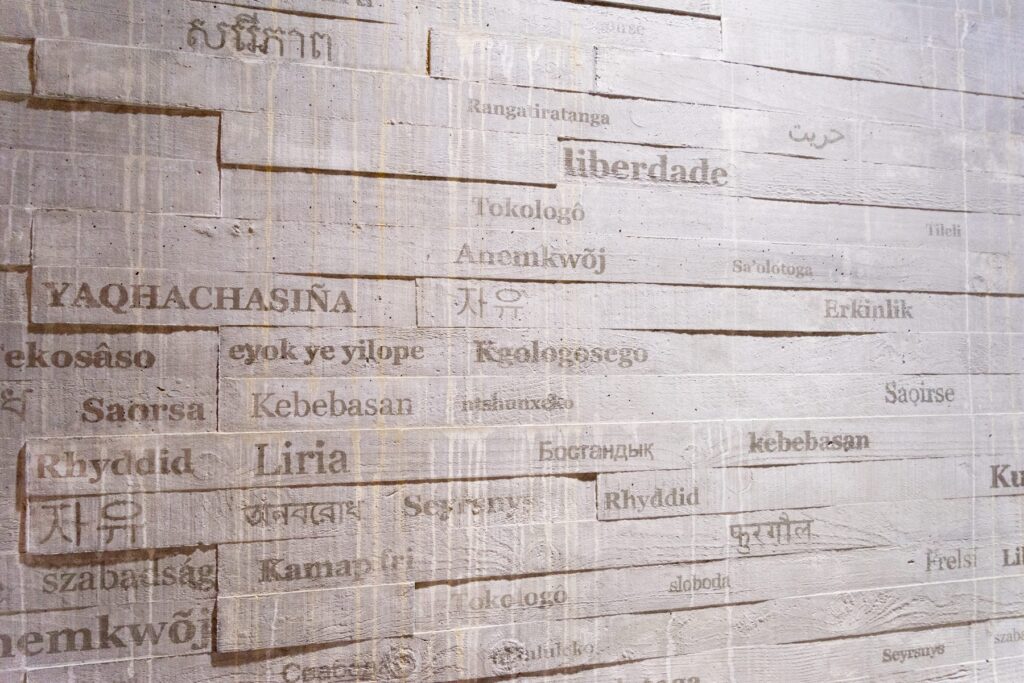 សេរីភាព
Rangatiratanga
حريت
liberdade
Tokologô
Tileli
Anemkwõj
Sa'olotoga
YAQHACHASIÑA
자유
Erkinlik
ekosâso
eyok ye yilope
Kgologosego
Saorsa
Kebebasan
ntshunxeko
Saoirse
Rhyddid
Liria
Бостандық
kebebasan
Ku
자유
অনবরোধ
Seyrsnys
Rhyddid
फुरगौल
szabadság
Kamap fri
sloboda
Frelsi
Li
Tokologo
nemkwõj
Seyrsnys
szab